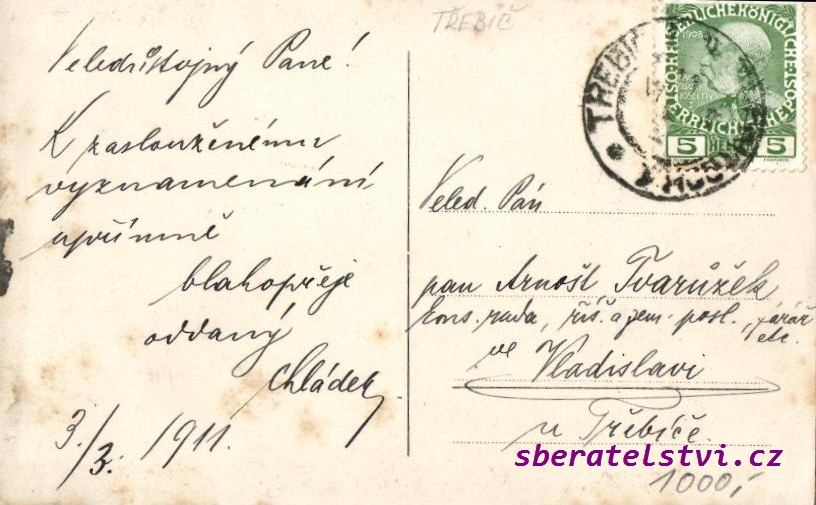 TŘEBÍČ
Veledůstojný Pane!
K zaslouženému
vyznamenání
upřímně
blahopřeje
oddaný
Chládek
3./3. 1911.
1908
KAISERLICHE KÖNIGLICHE
ÖSTERREICHISCHE
5 HELLER 5
TŘEBÍČ
Veled. Pán
pan Arnošt Tvarůžek
kons. rada, říš. a zem. posl., farář
etc.
ve Vladislavi
u Třebíče.
sberatelstvi.cz
1000,-